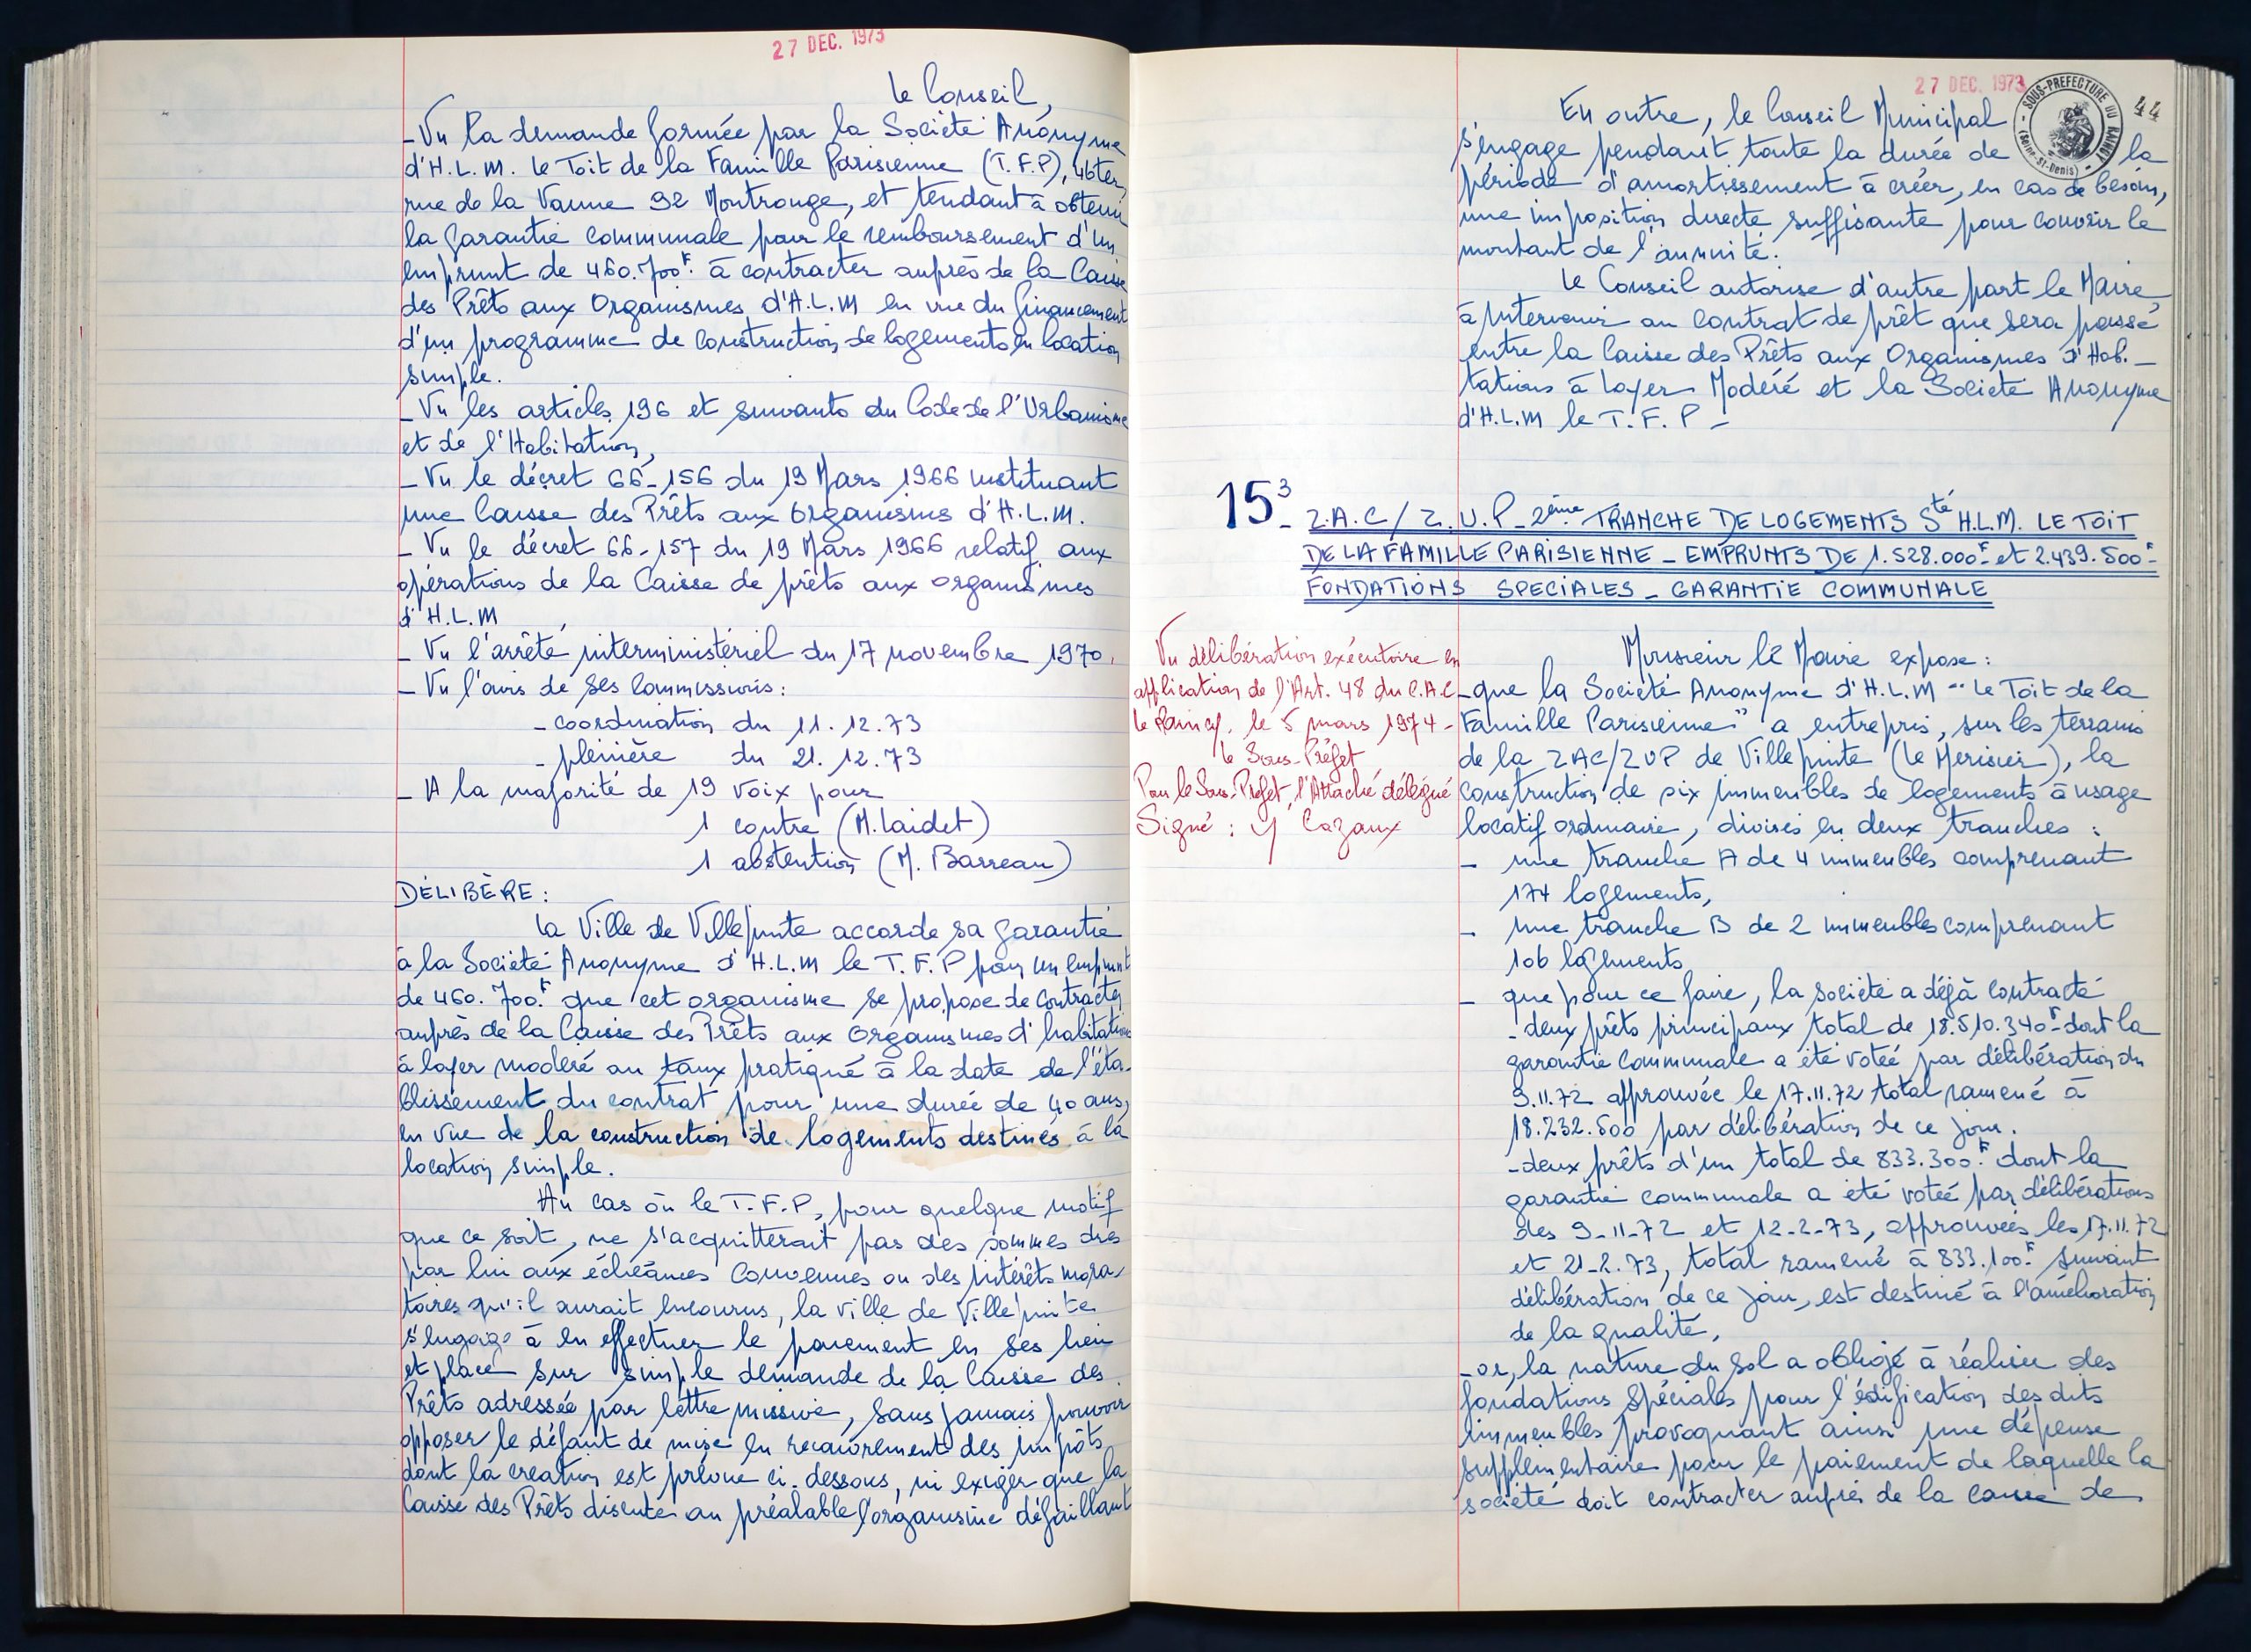 27 DEC. 1973
Le Conseil,
- Vu la demande formée par la Société Anonyme
d'H.L.M. Le Toit de la Famille Parisienne (T.F.P), 46ter,
rue de la Vanne 92 Montrouge, et tendant à obtenir
la garantie communale pour le remboursement d'un
emprunt de 460.700F. à contracter auprès de la Caisse
des Prêts aux Organismes d'H.L.M en vue du financement
d'un programme de construction de logements en location
simple.
- Vu les articles 196 et suivants du Code de l'Urbanisme
et de l'Habitation,
- Vu le décret 66-156 du 19 Mars 1966 instituant
une Caisse des Prêts aux Organismes d'H.L.M.
- Vu le décret 66-157 du 19 Mars 1966 relatif aux
opérations de la Caisse de prêts aux organismes
d'H.L.M
- Vu l'arrêté interministériel du 17 novembre 1970.
- Vu l'avis de ses Commissions :
- coordination du 11.12.73
- plénière du 21.12.73
- A la majorité de 19 voix pour
1 contre (M. Laidet)
1 abstention (M. Barreau)
DÉLIBÈRE :
La Ville de Villepinte accorde sa garantie
à la Société Anonyme d'H.L.M le T.F.P pour un emprunt
de 460.700F. que cet organisme se propose de contracter
auprès de la Caisse des Prêts aux Organismes d'habitation
à loyer modéré au taux pratiqué à la date de l'éta-
blissement du contrat pour une durée de 40 ans,
en vue de la construction de logements destinés à la
location simple.
Au cas où le T.F.P, pour quelque motif
que ce soit, ne s'acquitterait pas des sommes dues
par lui aux échéances convenues ou des intérêts mora-
toires qu'il aurait encourus, la ville de Villepinte
s'engage à en effectuer le paiement en ses lieu
et place sur simple demande de la Caisse des
Prêts adressée par lettre missive, sans jamais pouvoir
opposer le défaut de mise en recouvrement des impôts
dont la création est prévue ci-dessous, ni exiger que la
Caisse des Prêts discute au préalable l'organisme défaillant
27 DEC. 1973
SOUS-PREFECTURE DU RAINCY
(Seine-St-Denis)
44
En outre, le Conseil Municipal
s'engage pendant toute la durée de la
période d'amortissement à créer, en cas de besoin,
une imposition directe suffisante pour couvrir le
montant de l'annuité.
Le Conseil autorise d'autre part le Maire
à intervenir au contrat de prêt que sera passé
entre la Caisse des Prêts aux Organismes d'Hab.-
tations à Loyer Modéré et la Société Anonyme
d'H.L.M le T.F.P -
15³ - Z.A.C / Z.U.P - 2ème TRANCHE DE LOGEMENTS Sté H.L.M. LE TOIT
DE LA FAMILLE PARISIENNE - EMPRUNTS DE 1.528.000F. et 2.439.500F.
FONDATIONS SPECIALES - GARANTIE COMMUNALE
Vu délibération exécutoire en
application de l'Art. 48 du C.A.C
Le Raincy, le 5 mars 1974 -
le Sous-Préfet
Pour le Sous-Préfet, l'Attaché délégué
Signé : Y Cazaux
Monsieur le Maire expose :
- que la Société Anonyme d'H.L.M "Le Toit de la
Famille Parisienne" a entrepris, sur les terrains
de la ZAC/ZUP de Villepinte (Le Merisier), la
construction de six immeubles de logements à usage
locatif ordinaire, divisés en deux tranches :
- une tranche A de 4 immeubles comprenant
174 logements,
- une tranche B de 2 immeubles comprenant
106 logements
- que pour ce faire, la société a déjà contracté
- deux prêts principaux total de 18.510.340F. dont la
garantie communale a été votée par délibération du
9.11.72 approuvée le 17.11.72 total ramené à
18.232.500 par délibération de ce jour.
- deux prêts d'un total de 833.300F. dont la
garantie communale a été votée par délibérations
des 9-11-72 et 12-2-73, approuvées les 17.11.72
et 21-2.73, total ramené à 833.100F. suivant
délibération de ce jour, est destiné à l'amélioration
de la qualité,
- or, la nature du sol a obligé à réaliser des
fondations spéciales pour l'édification des dits
immeubles provoquant ainsi une dépense
supplémentaire pour le paiement de laquelle la
société doit contracter auprès de la Caisse de